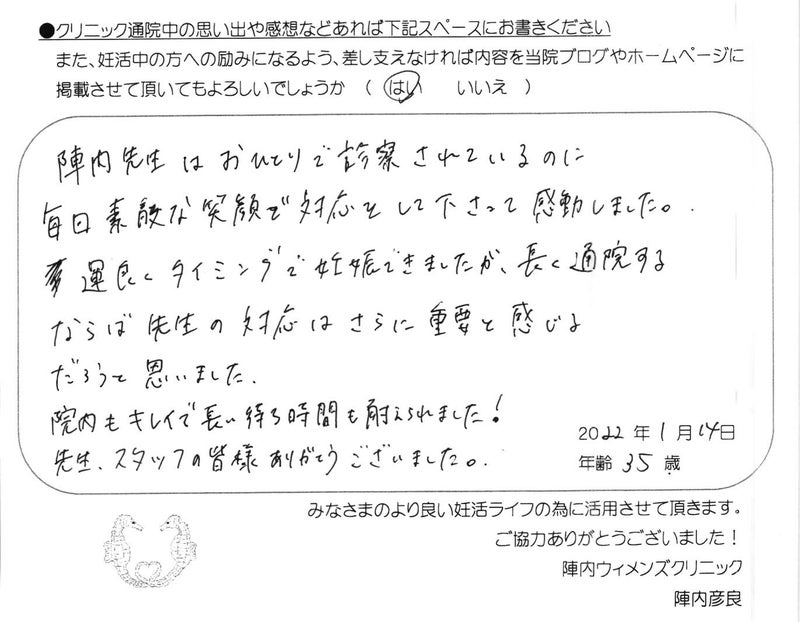 ●クリニック通院中の思い出や感想などあれば下記スペースにお書きください
また、妊活中の方への励みになるよう、差し支えなければ内容を当院ブログやホームページに
掲載させて頂いてもよろしいでしょうか （ はい いいえ ）
陣内先生はおひとりで診察されているのに
毎日素敵な笑顔で対応をして下さって感動しました。
運良くタイミングで妊娠できましたが、長く通院する
ならば先生の対応はさらに重要と感じる
だろうと思いました。
院内もキレイで長い待ち時間も耐えられました！
先生、スタッフの皆様ありがとうございました。
2022年1月14日
年齢 35 歳
みなさまのより良い妊活ライフの為に活用させて頂きます。
ご協力ありがとうございました！
陣内ウィメンズクリニック
陣内彦良